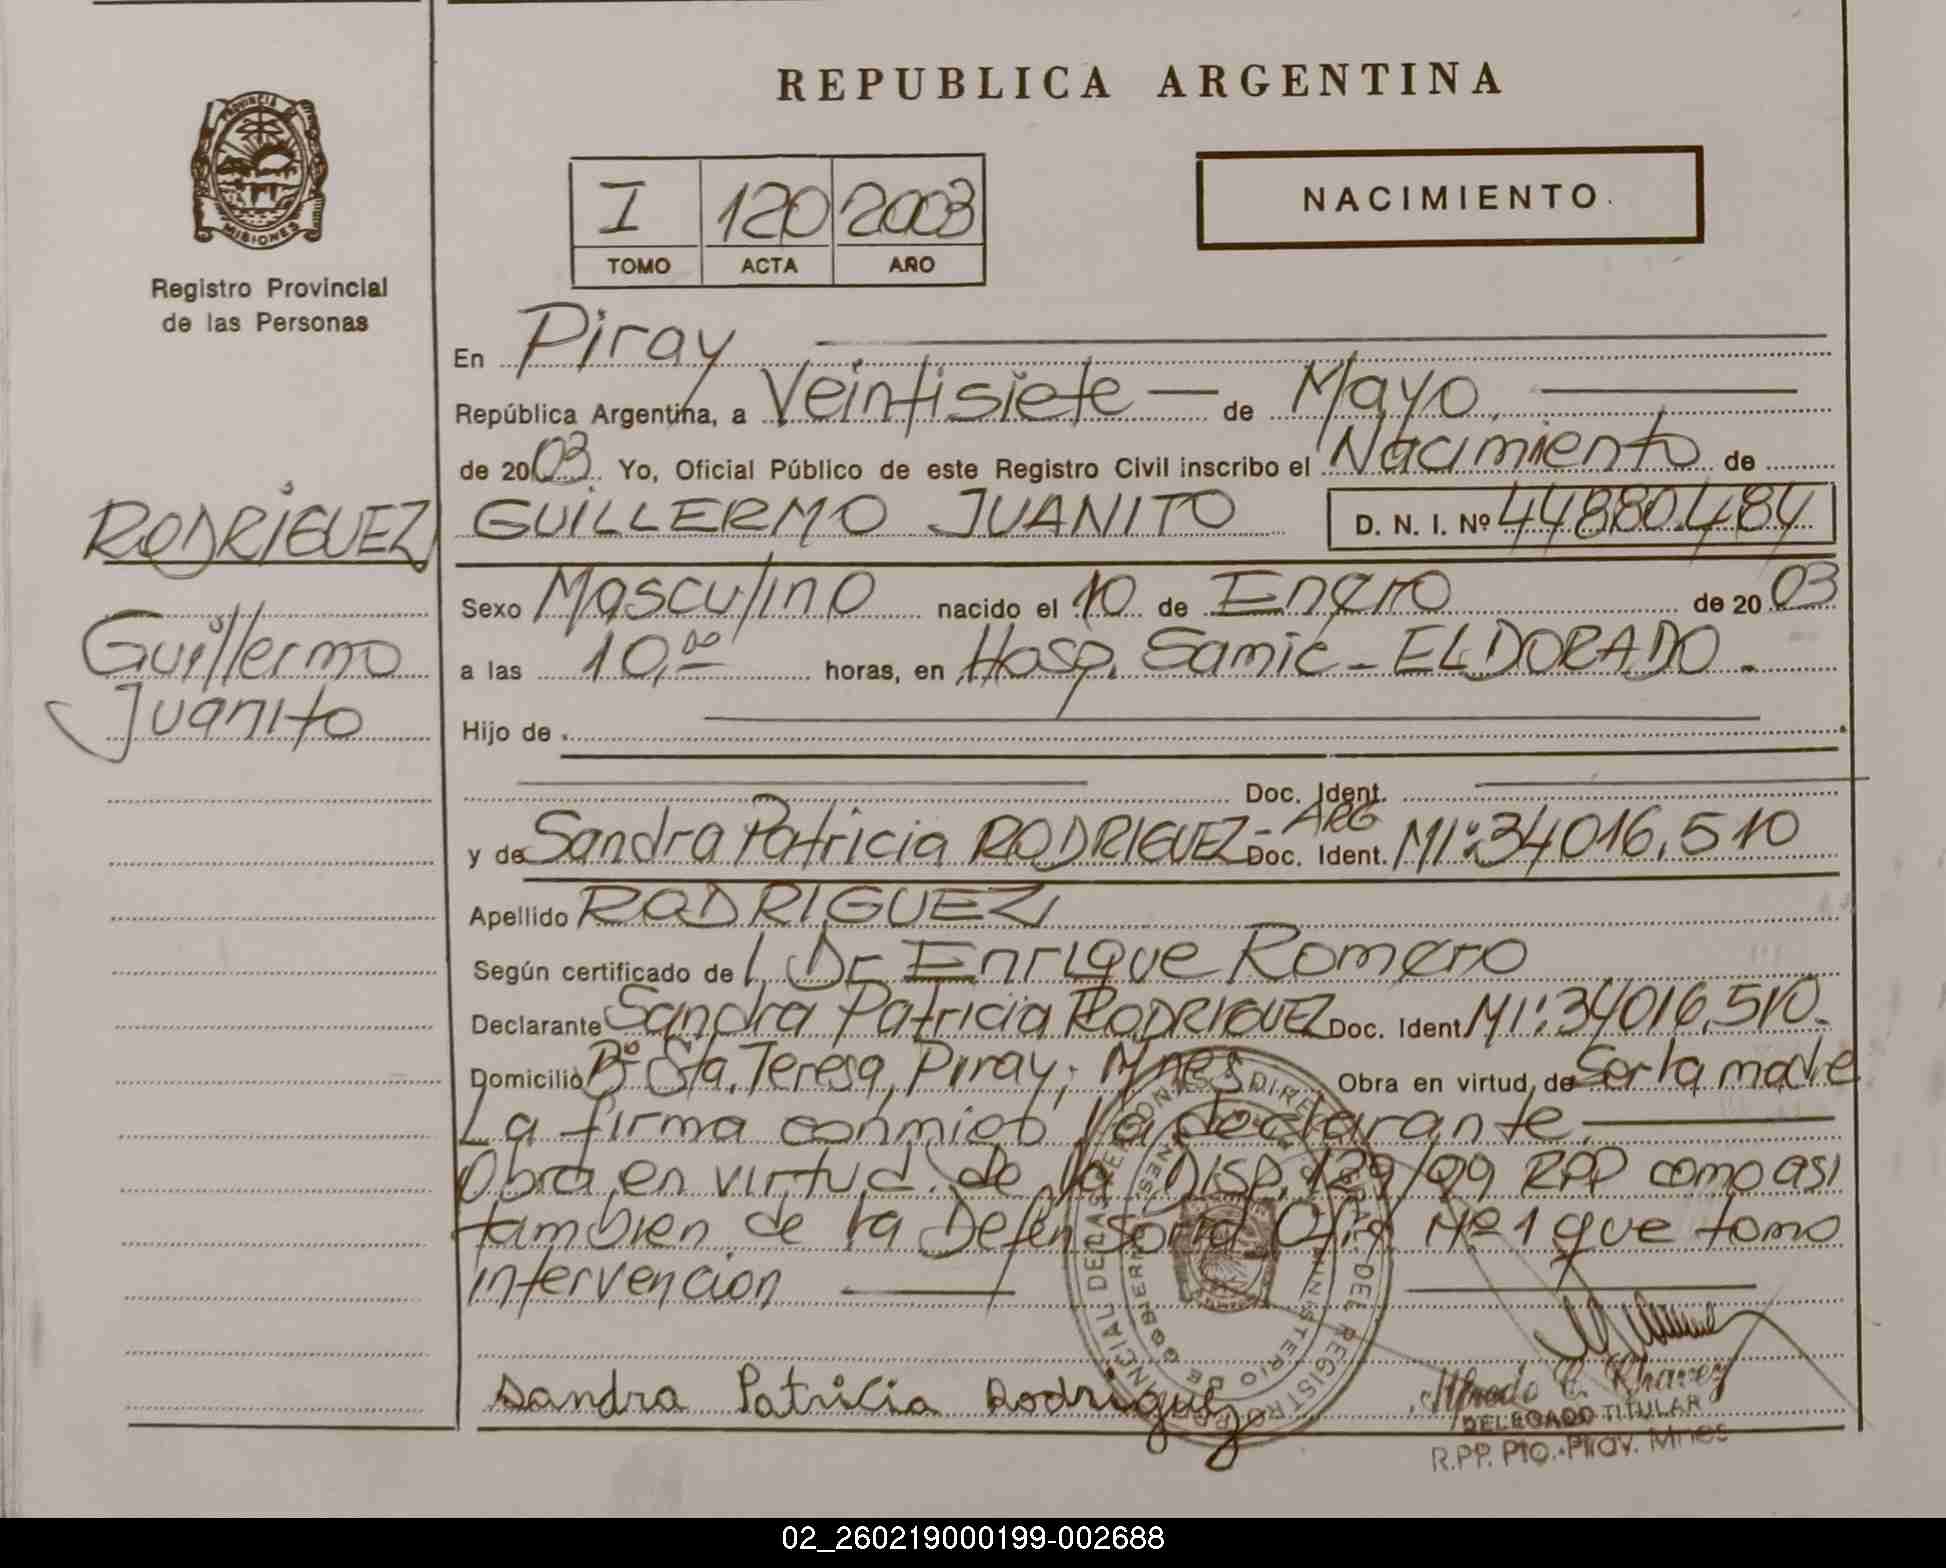 REPUBLICA ARGENTINA
PROVINCIA
MISIONES
Registro Provincial
de las Personas
I 120 2003
TOMO ACTA AÑO
NACIMIENTO
En Piray
República Argentina, a Veintisiete de Mayo.
de 2003. Yo, Oficial Público de este Registro Civil inscribo el Nacimiento de
RODRIGUEZ
Guillermo
Juanito
GUILLERMO JUANITO D. N. I. Nº 44880.484
Sexo Masculino nacido el 10 de Enero de 2003
a las 10,00 horas, en Hosp. Samic - ELDORADO.
Hijo de
Doc. Ident.
y de Sandra Patricia RODRIGUEZ - ARG Doc. Ident. MI: 34016.510
Apellido RODRIGUEZ
Según certificado de Dr Enrique Romero
Declarante Sandra Patricia RODRIGUEZ Doc. Ident MI: 34016.510.
Domicilio Bº Sta. Teresa, Piray, Mnes Obra en virtud de Ser la madre
La firma conmigo la declarante.
Obra en virtud de la DISP. 129/99 RPP como asi
tambien de la Defensoria Ofic Nº 1 que tomo
intervencion
Sandra Patricia Rodriguez
Alfredo C. Chavez
DELEGADO TITULAR
R.P.P. Pto. Piray. Mnes
02_260219000199-002688